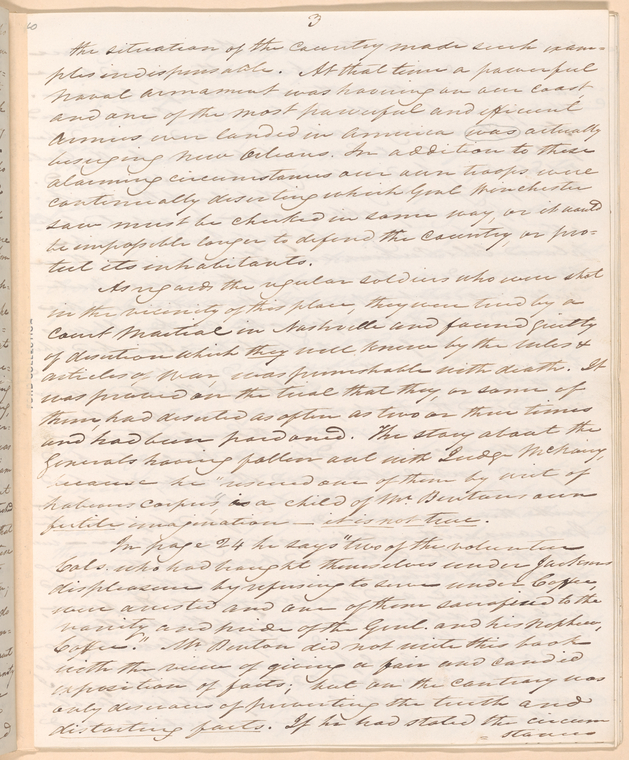 3
the situation of the country made such exam=
ples indispensable. At that time a powerful
naval armament was hovering on our coast
and one of the most powerful and efficient
armies ever landed in America was actually
beseiging New Orleans. In addition to these
alarming circumstances our own troops were
continually deserting which Genl Winchester
saw must be checked in some way, or it would
be impossible longer to defend the country, or pro=
tect its inhabitants.
As regards the regular soldiers who were shot
in the vicinity of this place, they were tried by a
Court Martial in Nashville and found guilty
of desertion which they well knew by the rules &
articles of war, was punishable with death. It
was proved on the trial that they, or some of
them had deserted as often as two or three times
and had been pardoned. The story about the
Generals having fallen out with Judge McNairy
because he "rescued one of them by writ of
habeus corpus", is a child of Mr Bentons own
fertile imagination — it is not true.
In page 24 he says "two of the volunteer
Cols. who had brought themselves under Jacksons
displeasure by refusing to serve under Coffee,
were arrested and one of them sacrificed to the
vanity and pride of the Genl. and his nephew,
Coffee." Mr Benton did not write this book
with the view of giving a fair and candid
exposition of facts; but on the contrary was
only desirous of perverting the truth and
distorting facts. If he had stated the circum
= stances